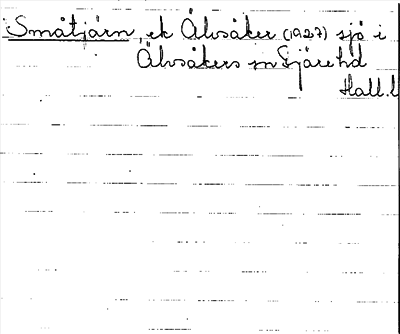 Småtjärn, ek Älvsåker (1927) sjö i
Älvsåkers sn Fjäre hd
Hall. l